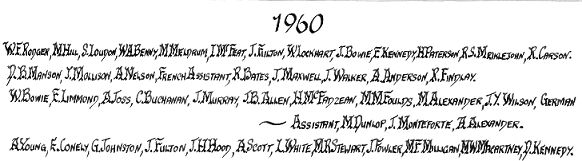 1960
W.F. RODGER, M. HILL, S. LOUDON, W.A. BENNY, M. MELDRUM, I. McFEAT, J. FULTON, W. LOCKHART, J. BOWIE, E. KENNEDY, H. PATERSON, R.S. MEIKLEJOHN, R. CARSON.
D.B. MANSON, J. MOLLISON, A. NELSON, FRENCH ASSISTANT, R. BATES, J. MAXWELL, J. WALKER, A. ANDERSON, R. FINDLAY.
W. BOWIE, E. LIMMOND, A. JOSS, C. BUCHANAN, J. MURRAY, J.B. ALLEN, H. McFADZEAN, M.M. FOULDS, M. ALEXANDER, J.Y. WILSON, GERMAN
ASSISTANT, M. DUNLOP, J. MONTEFORTE, A. ALEXANDER.
A. YOUNG, E. CONELY, G. JOHNSTON, J. FULTON, J.H. HOOD, A. SCOTT, L. WHITE, M.R. STEWART, J. FOWLER, M.F. MULLIGAN, M.W. MACARTNEY, D. KENNEDY.